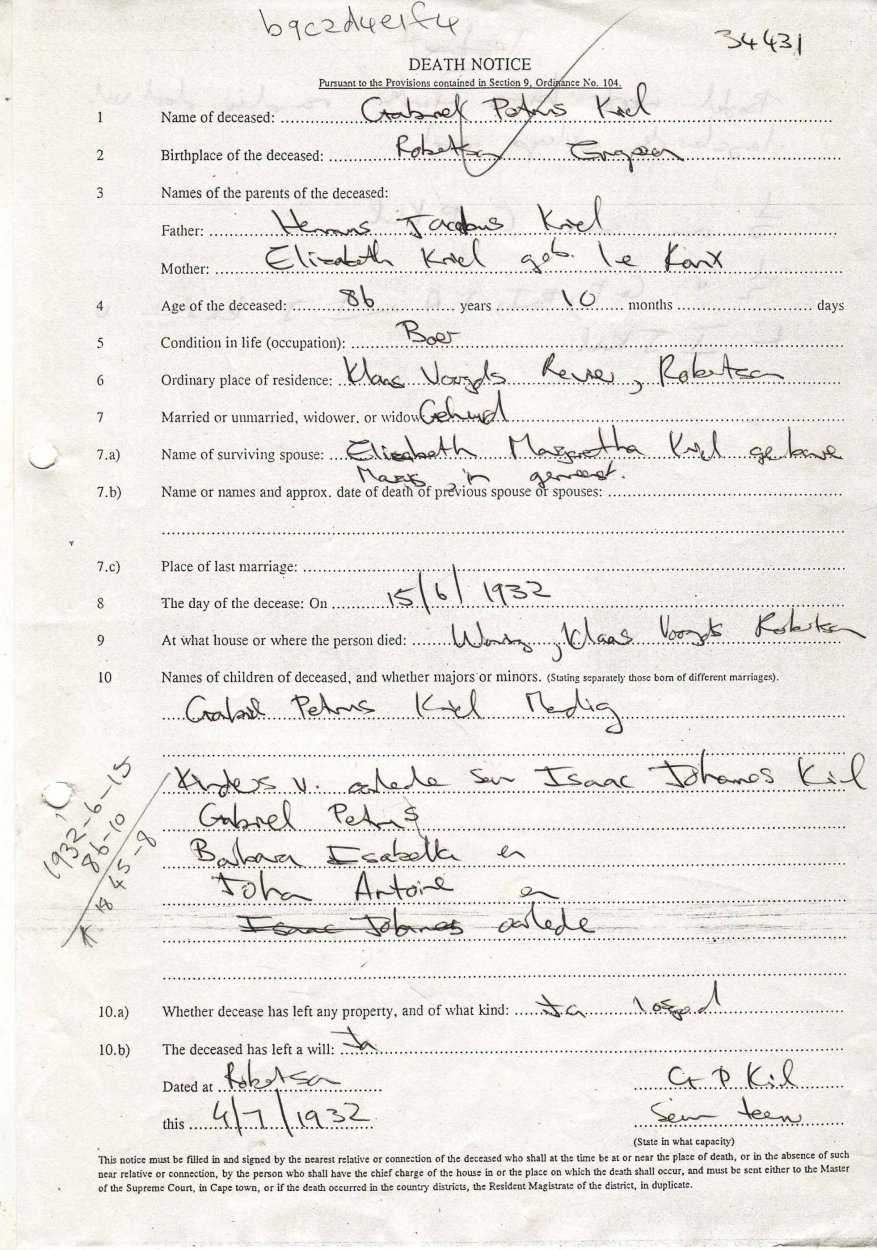 b9c2d4e1f4
34431
DEATH NOTICE
Pursuant to the Provisions contained in Section 9, Ordinance No. 104.
1 Name of deceased: Gabriel Petrus Kriel
2 Birthplace of the deceased: Robertson
3 Names of the parents of the deceased:
Father: Hermanus Jacobus Kriel
Mother: Elizabeth Kriel geb. le
4 Age of the deceased: 86 years 10 months days
5 Condition in life (occupation): Boer
6 Ordinary place of residence: Klaas Voogds Revier, Robertson
7 Married or unmarried, widower, or widow Gehuud
7.a) Name of surviving spouse: Elizabeth Margaretha Kriel gebore
in gemeenst.
7.b) Name or names and approx. date of death of previous spouse or spouses:
7.c) Place of last marriage:
8 The day of the decease: On 15/6/1932
9 At what house or where the person died: Woning, Klaas Voogds Robertson
10 Names of children of deceased, and whether majors or minors. (Stating separately those born of different marriages).
Gabriel Petrus Kriel Mondig
Kinders v. oorlede Seun Isaac Johannes Kriel
Gabriel Petrus
Barbara Isabella en
Johan Antoine en
Isaac Johannes oorlede
1932-6-15
86-10
1845-8
10.a) Whether decease has left any property, and of what kind: Ja losgoed
10.b) The deceased has left a will: Ja
Dated at Robertson G P Kriel
this 4/7/1932 Seun teen
(State in what capacity)
This notice must be filled in and signed by the nearest relative or connection of the deceased who shall at the time be at or near the place of death, or in the absence of such
near relative or connection, by the person who shall have the chief charge of the house in or the place on which the death shall occur, and must be sent either to the Master
of the Supreme Court, in Cape town, or if the death occurred in the country districts, the Resident Magistrate of the district, in duplicate.